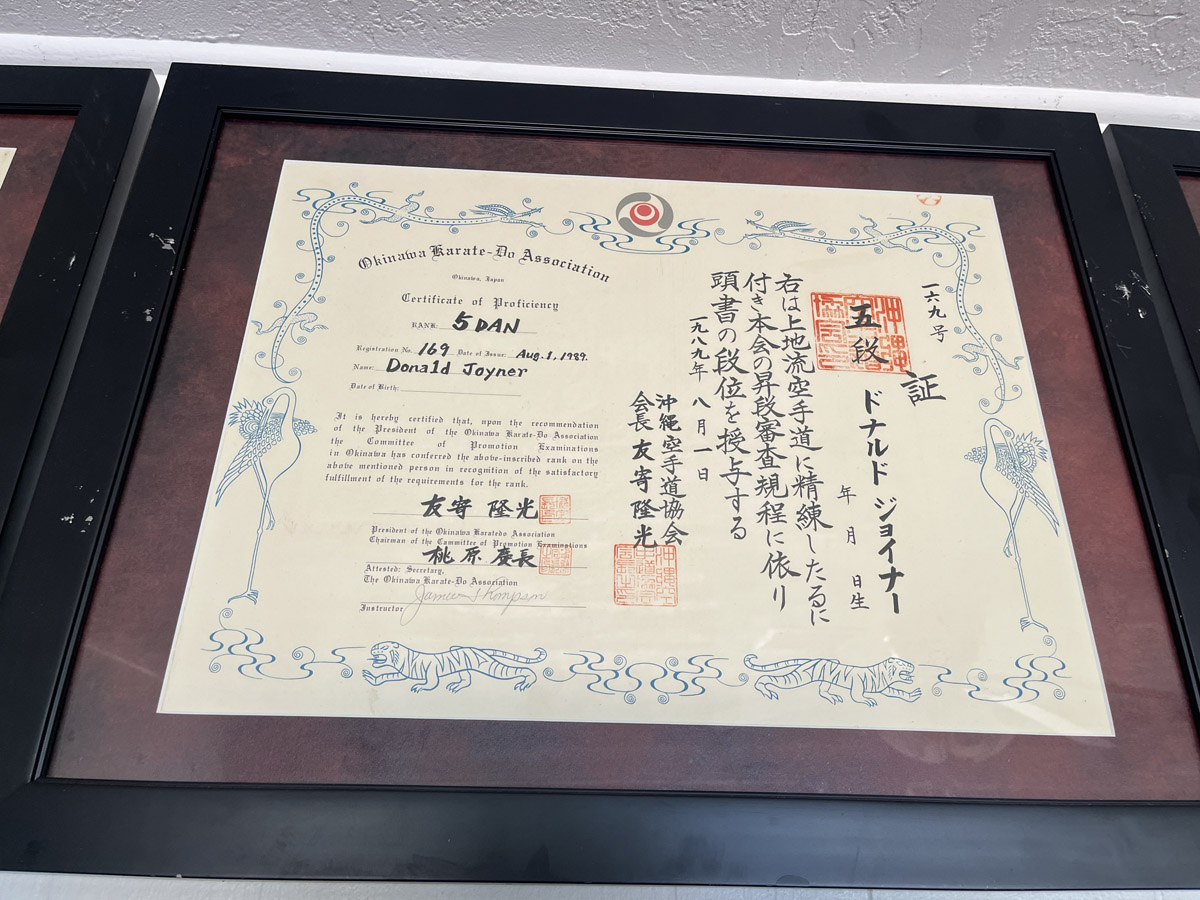 Okinawa Karate-Do Association
Okinawa, Japan
Certificate of Proficiency
RANK 5 DAN
Registration No. 169 Date of Issue: Aug. 1, 1989.
Name: Donald Joyner
Date of Birth:
It is hereby certified that, upon the recommendation
of the President of the Okinawa Karate-Do Association
the Committee of Promotion Examinations
in Okinawa has conferred the above-inscribed rank on the
above mentioned person in recognition of the satisfactory
fulfillment of the requirements for the rank.
友寄 隆光
President of the Okinawa Karatedo Association
Chairman of the Committee of Promotion Examinations
桃原 慶長
Attested: Secretary.
The Okinawa Karate-Do Association
Instructor
一六九号
証
五段
ドナルド ジョイナー
年 月 日生
右は上地流空手道に精練したるに
付き本会の昇段審査規程に依り
頭書の段位を授与する
一九八九年 八月一日
沖縄空手道協会
会長 友寄隆光